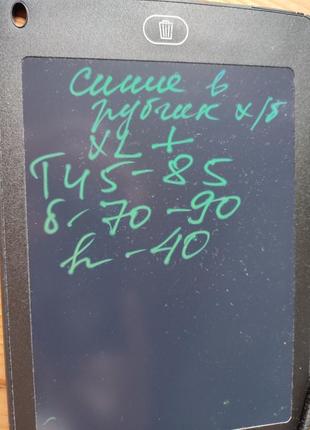 синие в
рубчик х/б
XL +
Т 45-85
б. 70-90
h - 40